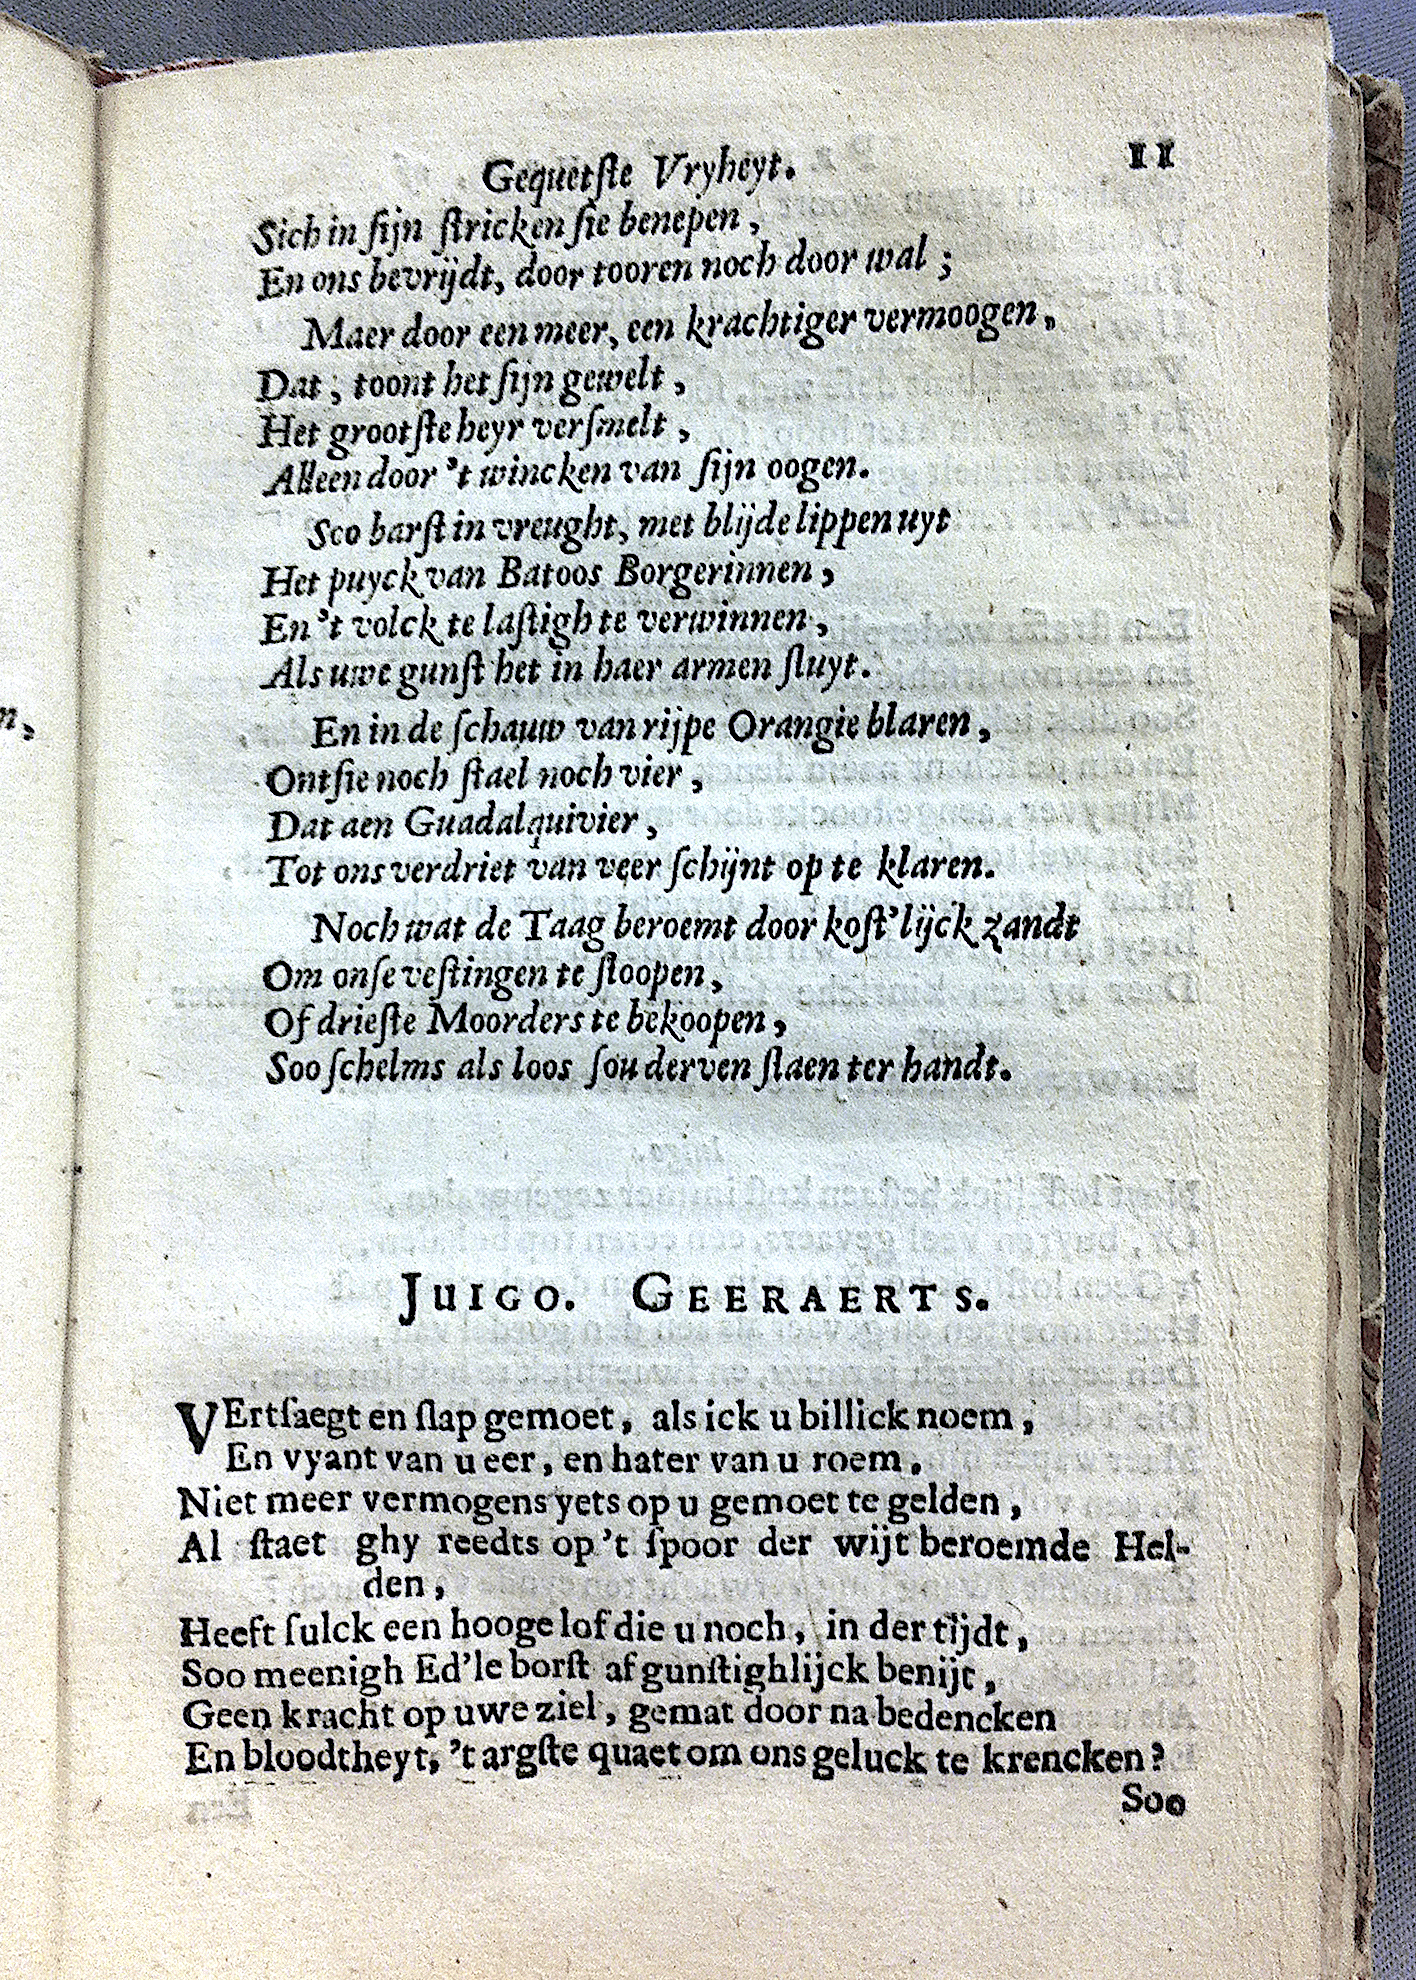 Gequetſte Vryheyt. 11
Sich in ſijn ſtricken ſie benepen,
En ons bevrijdt, door tooren noch door wal;
Maer door een meer, een krachtiger vermoogen,
Dat; toont het ſijn gewelt,
Het grootſte heyr verſmelt,
Alleen door 't wincken van ſijn oogen.
Soo barſt in vreught, met blijde lippen uyt
Het puyck van Batoos Borgerinnen,
En 't volck te laſtigh te verwinnen,
Als uwe gunſt het in haer armen ſluyt.
En in de ſchauw van rijpe Orangie blaren,
Ontſie noch ſtael noch vier,
Dat aen Guadalquivier,
Tot ons verdriet van veer ſchijnt op te klaren.
Noch wat de Taag beroemt door koſt'lijck zandt
Om onſe veſtingen te ſloopen,
Of drieſte Moorders te bekoopen,
Soo ſchelms als loos ſou derven ſlaen ter handt.
JUIGO. GEERAERTS.
VErtſaegt en ſlap gemoet, als ick u billick noem,
En vyant van u eer, en hater van u roem,
Niet meer vermogens yets op u gemoet te gelden,
Al ſtaet ghy reedts op 't ſpoor der wijt beroemde Hel-
den,
Heeft ſulck een hooge lof die u noch, in der tijdt,
Soo meenigh Ed'le borſt afgunſtighlijck benijt,
Geen kracht op uwe ziel, gemat door na bedencken
En bloodtheyt, 't argſte quaet om ons geluck te krencken?
Soo